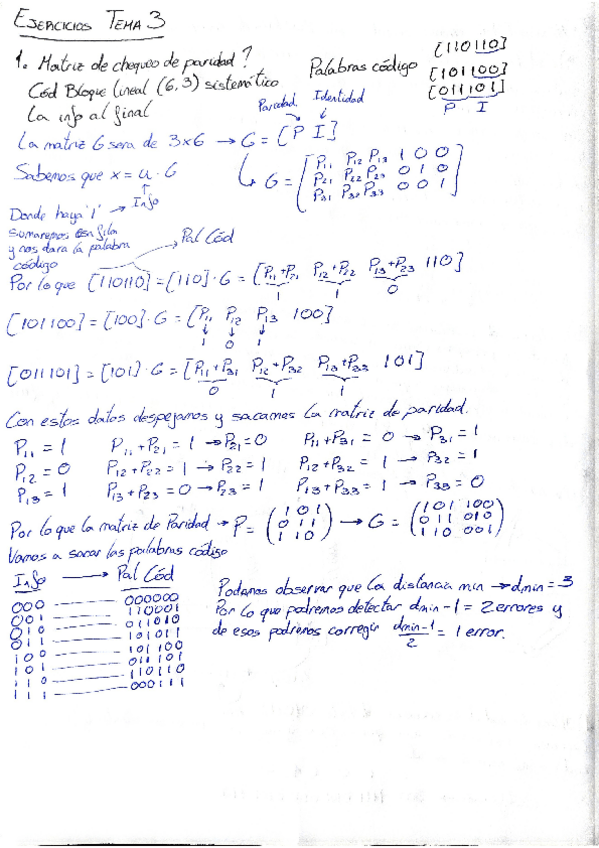 EJERCICIOS TEMA 3
1. Matriz de chequeo de paridad?
Cód Bloque Lineal (6,3) sistemático
La info al final
Palabras código
[110110]
[101100]
[011101]
P I
Paridad Identidad
La matriz G sera de 3x6 → G = [P I]
Sabemos que x = u · G
Info
G = [P11 P12 P13 1 0 0
P21 P22 P23 0 1 0
P31 P32 P33 0 0 1]
Donde haya '1' →
sumaremos esa fila
y nos dara la palabra
código
Pal Cód
Por lo que [110110] = [110] · G = [P11+P21 P12+P22 P13+P23 110]
1 1 0
[101100] = [100] · G = [P11 P12 P13 100]
1 0 1
[011101] = [101] · G = [P11+P31 P12+P32 P13+P33 101]
0 1 1
Con estos datos despejamos y sacamos la matriz de paridad.
P11 = 1 P11+P21 = 1 → P21 = 0 P11+P31 = 0 → P31 = 1
P12 = 0 P12+P22 = 1 → P22 = 1 P12+P32 = 1 → P32 = 1
P13 = 1 P13+P23 = 0 → P23 = 1 P13+P33 = 1 → P33 = 0
Por lo que la matriz de Paridad → P = (1 0 1
0 1 1
1 1 0) → G = (101 100
011 010
110 001)
Vamos a sacar las palabras código
Info → Pal Cód
000 — 000000
001 — 110001
010 — 011010
011 — 101011
100 — 101100
101 — 011101
110 — 110110
111 — 000111
Podemos observar que la distancia min → dmin = 3
Por lo que podremos detectar dmin-1 = 2 errores y
de esos podremos corregir dmin-1/2 = 1 error.